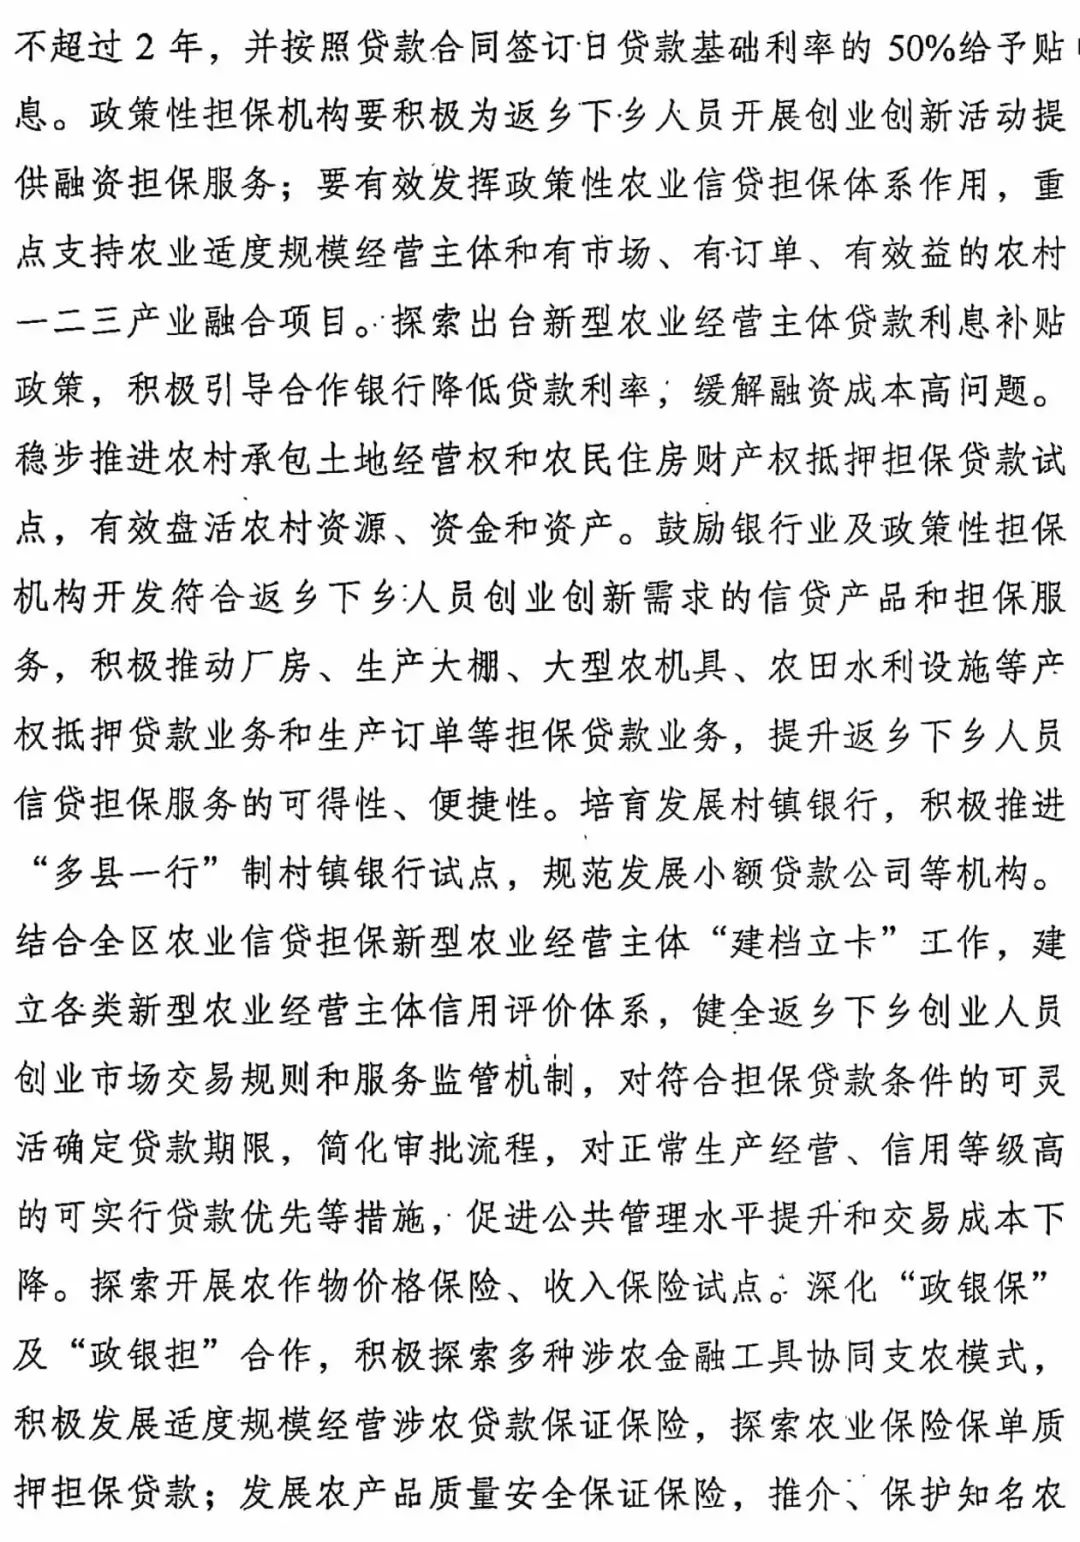 不超过 2 年，并按照贷款合同签订日贷款基础利率的 50%给予贴
息。政策性担保机构要积极为返乡下乡人员开展创业创新活动提
供融资担保服务；要有效发挥政策性农业信贷担保体系作用，重
点支持农业适度规模经营主体和有市场、有订单、有效益的农村
一二三产业融合项目。探索出台新型农业经营主体贷款利息补贴
政策，积极引导合作银行降低贷款利率，缓解融资成本高问题。
稳步推进农村承包土地经营权和农民住房财产权抵押担保贷款试
点，有效盘活农村资源、资金和资产。鼓励银行业及政策性担保
机构开发符合返乡下乡人员创业创新需求的信贷产品和担保服
务，积极推动厂房、生产大棚、大型农机具、农田水利设施等产
权抵押贷款业务和生产订单等担保贷款业务，提升返乡下乡人员
信贷担保服务的可得性、便捷性。培育发展村镇银行，积极推进
“多县一行”制村镇银行试点，规范发展小额贷款公司等机构。
结合全区农业信贷担保新型农业经营主体“建档立卡”工作，建
立各类新型农业经营主体信用评价体系，健全返乡下乡创业人员
创业市场交易规则和服务监管机制，对符合担保贷款条件的可灵
活确定贷款期限，简化审批流程，对正常生产经营、信用等级高
的可实行贷款优先等措施，促进公共管理水平提升和交易成本下
降。探索开展农作物价格保险、收入保险试点。深化“政银保”
及“政银担”合作，积极探索多种涉农金融工具协同支农模式，
积极发展适度规模经营涉农贷款保证保险，探索农业保险保单质
押担保贷款；发展农产品质量安全保证保险，推介、保护知名农